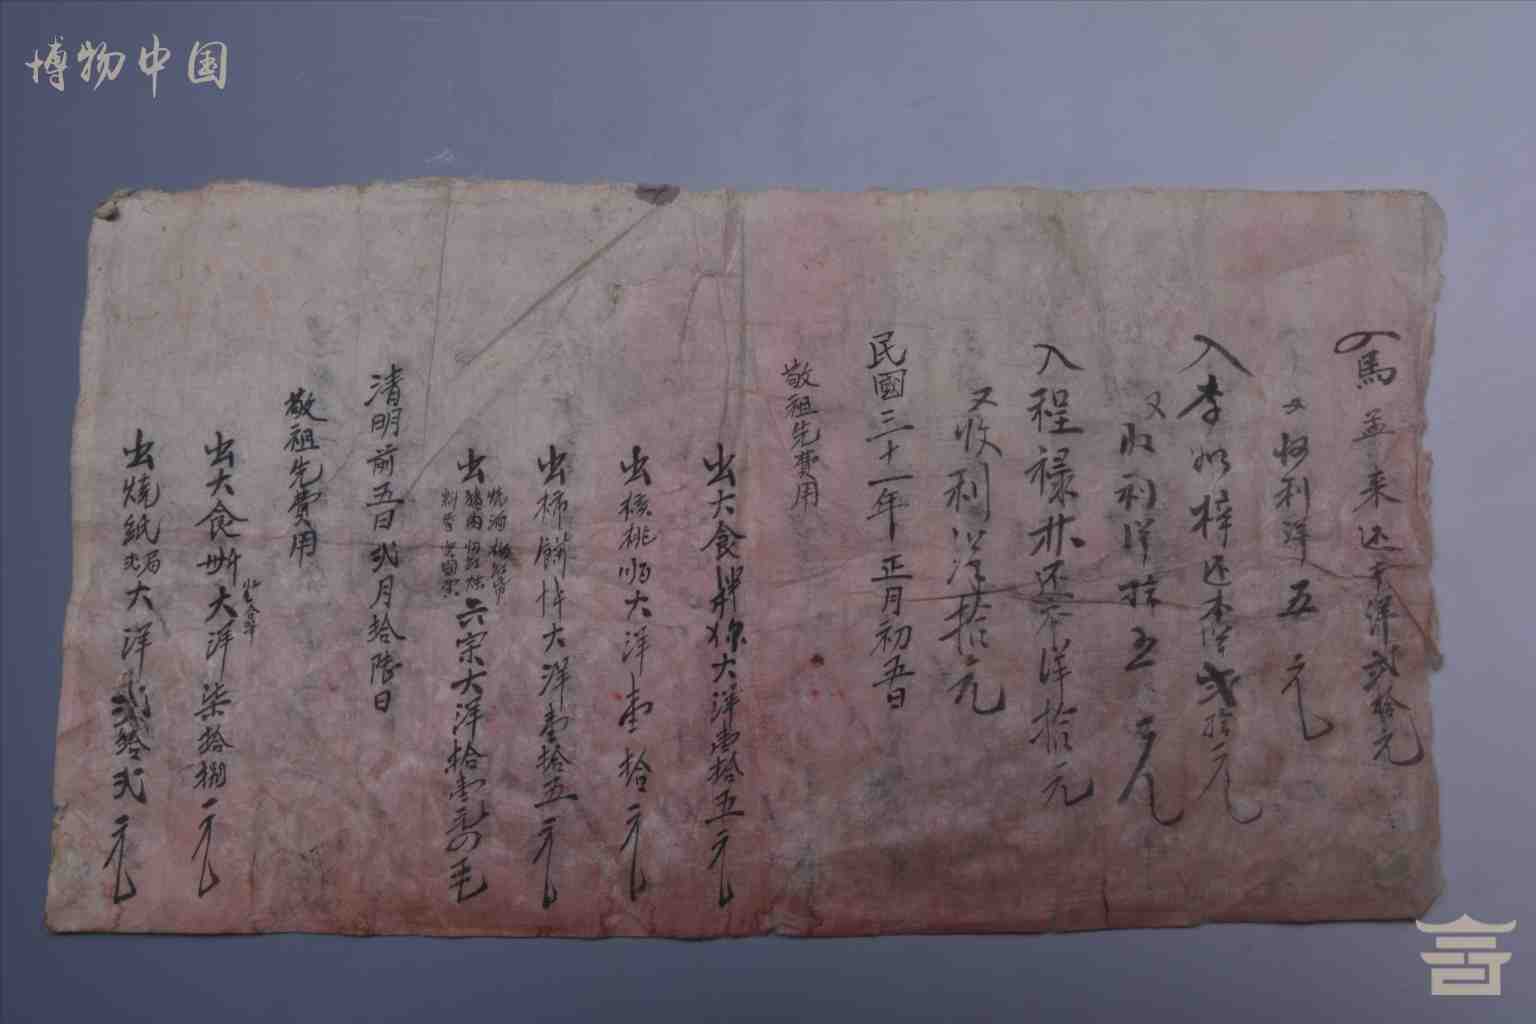 博物中国
馬孟来还本洋弍拾元
又收利洋五元
入李如梓还本洋弍拾元
又收利洋拾五元
入程禄林还本洋拾元
又收利洋拾元
民國三十一年正月初五日
敬祖先費用
出大食 大洋壹拾五元
出核桃 大洋壹拾元
出柿餅 大洋壹拾五元
出 燒酒 猪肉 六宗大洋拾壹元 毛
清明前五日弍月拾陸日
敬祖先費用
出大食 大洋柒拾捌元
出燒紙 大洋弍拾弍元